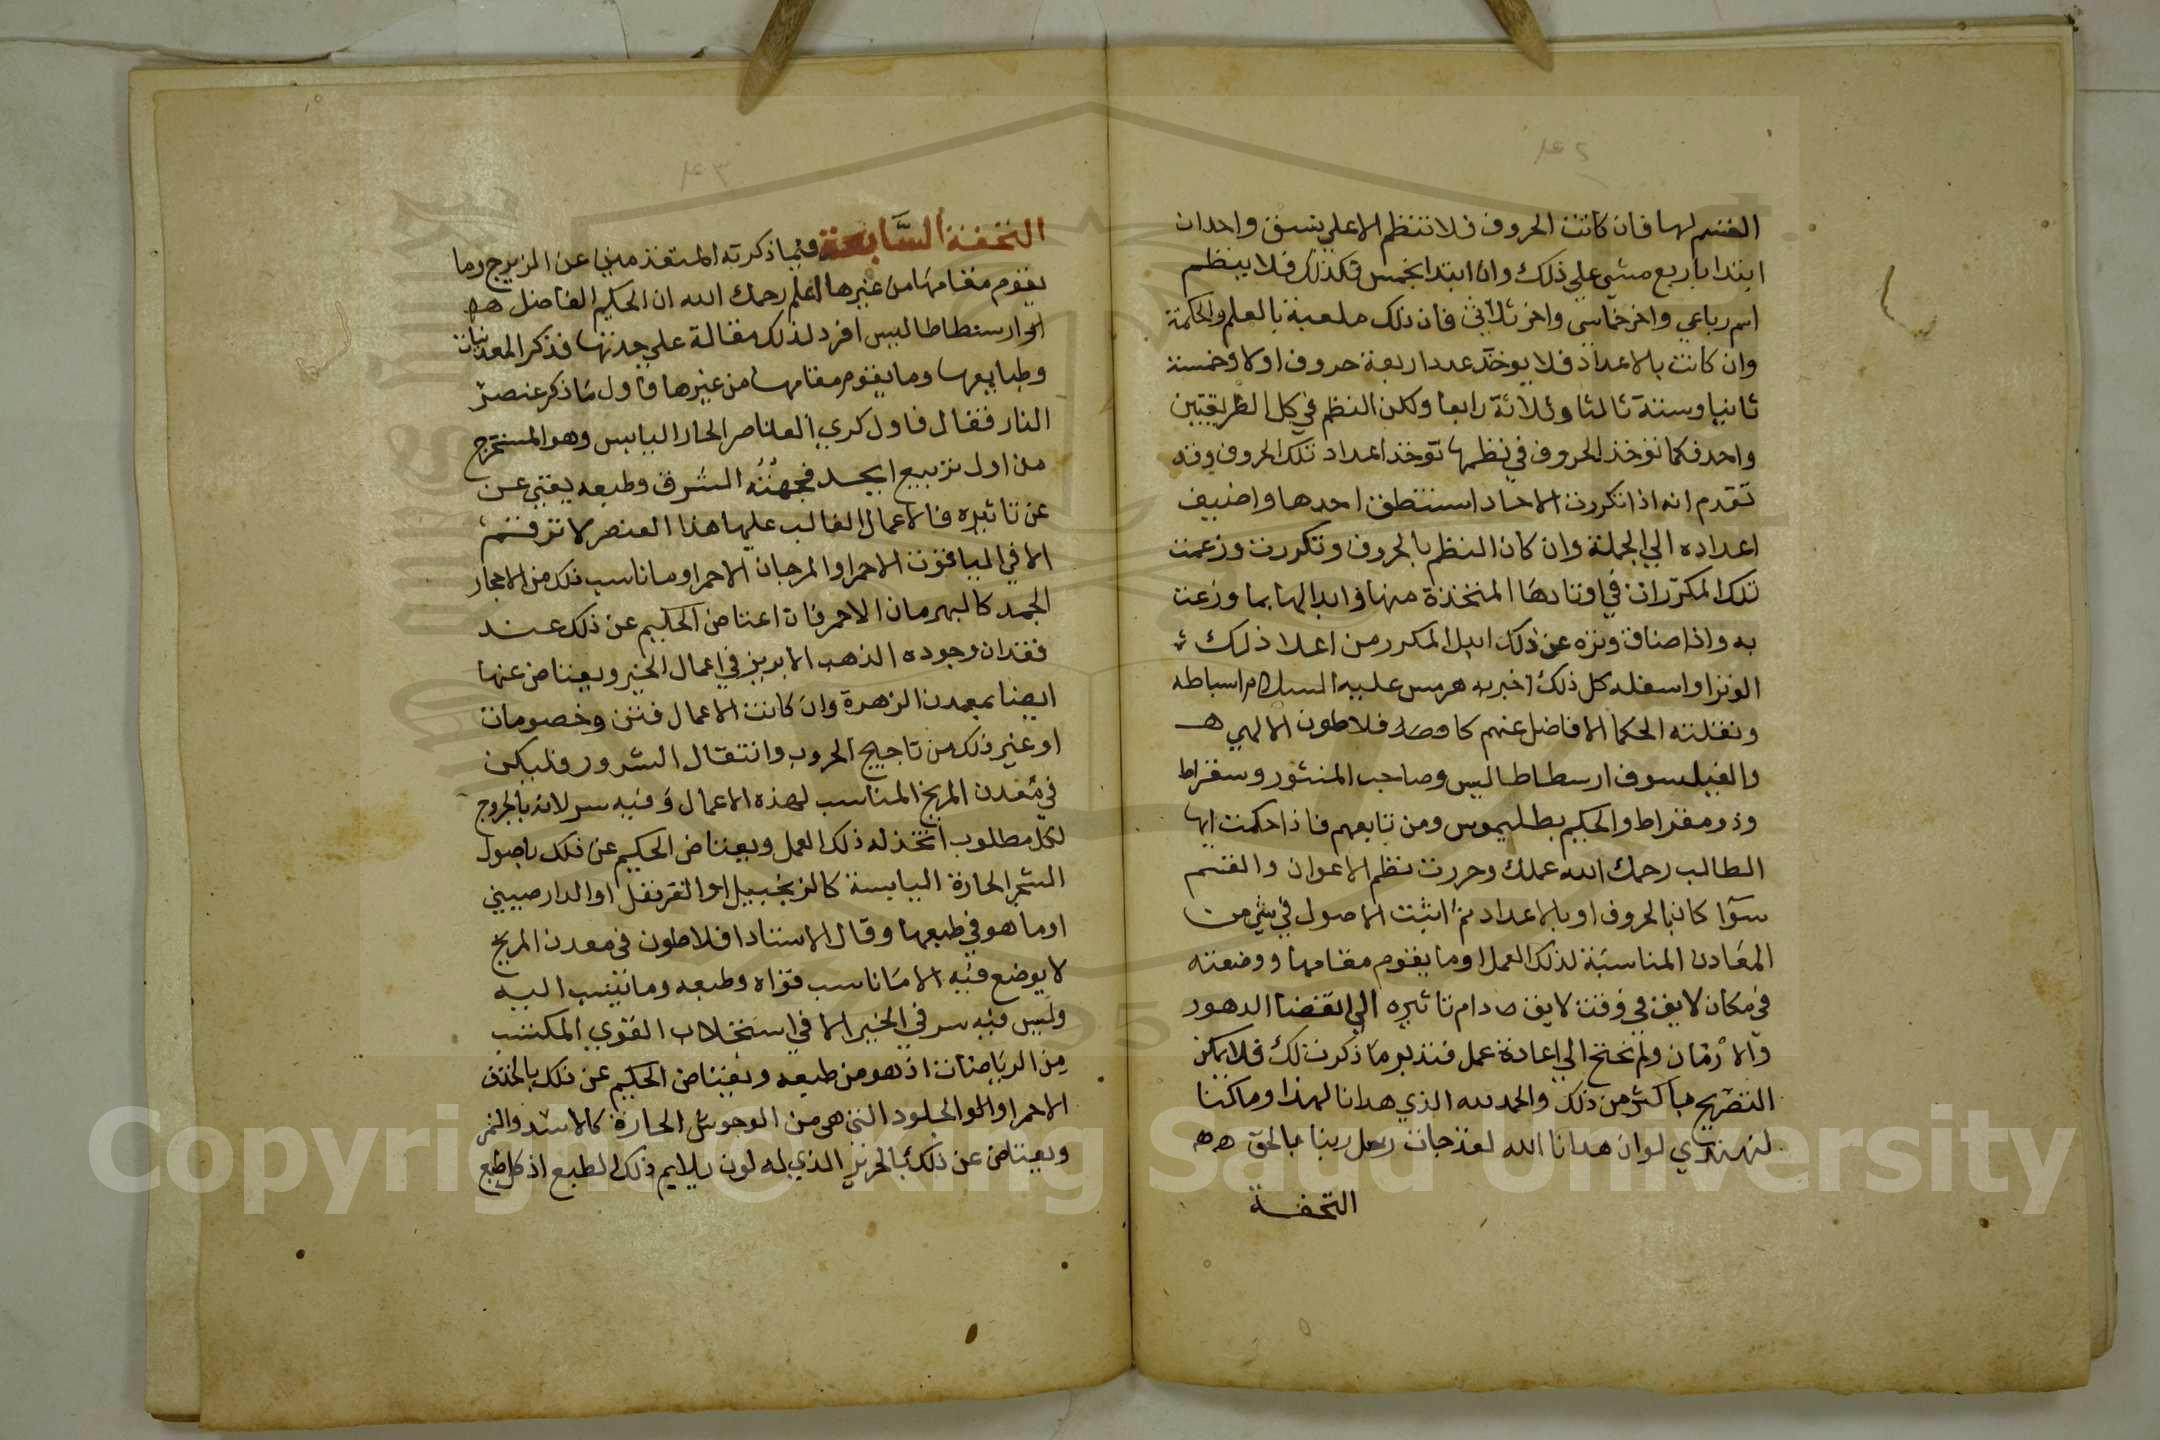 القسم لها فان كانت الحروف فلا تنتظم الا علي نسق واحد ان
ابتدا باربع مشي علي ذلك وان ابتدا بخمس فكذلك فلا ينظم
اسم رباعي واخر خماسي واخر ثلاثي فان ذلك ملعبة بالعلم والحكمة
وان كانت بالاعداد فلا يوخذ عدد اربعة حروف اولا وخمسة
ثانيا وستة ثالثا وثلاثة رابعا ولكن النظم في كل الطريقتين
واحد فكما توخذ الحروف في نظمها توخذ اعداد تلك الحروف وقد
تقدم انه اذا تكررت الاحاد استنطق احدها واضيف
اعداده الي الجملة وان كان النظم بالحروف وتكررت وزعمت
تلك المكررات في اوتادها المتخذة منها وابدالها بما وزعت
به واذا ضاق وتره عن ذلك ابدل المكرر من اعلا ذلك
الوتر او اسفله كل ذلك اخبر به هرمس عليه السلام اسباطه
ونقلته الحكما الافاضل عنهم كافلاطون الالهي هـ
والفيلسوف ارسطاطاليس وصاحب المنثور وسقراط
وذومقراط والحكيم بطليموس ومن تابعهم فاذا احكمت ايها
الطالب رحمك الله عملك وحررت نظم الاعوان والقسم
سوآ كان بالحروف او بالاعداد ثم اثبت الاصول في شي من
المعادن المناسبة لذلك العمل او ما يقوم مقامها ووضعته
في مكان لايق في وقت لايق دام تاثيره الي انقضا الدهور
والازمان ولم تحتج الي اعادة عمل فتدبر ما ذكرت لك فلا يمكن
التصريح باكثر من ذلك والحمد لله الذي هدانا لهذا وما كنا
لنهتدي لولا ان هدانا الله لقد جات رسل ربنا بالحق هـ هـ
التحفة
التحفة السَّابعة فيما ذكرته المتخذ مبني عن المزيرج وما
يقوم مقامها من غيرها اعلم رحمك الله ان الحكيم الفاضل هـ
ارسطاطاليس افرد لذلك مقالة علي حدتها فذكر المعدنيات
وطبايعها وما يقوم مقامها من غيرها واول ما ذكر عنصر
النار فقال فاول كري العناصر الحار اليابس وهو المستخرج
من اول تربيع ابجد فجهته الشرق وطبعه يغني عن
عن تاثيره فالاعمال الغالب عليها هذا العنصر لا ترقم
الا في الياقوت الاحمر او المرجان الاحمر او ما ناسب ذلك من الاحجار
الجمد كالبهرمان الاحمر فان اعتاض الحكيم عن ذلك عند
فقدان وجوده الذهب الابريز في اعمال الخير ويعتاض عنها
ايضا بمعدن الزهرة وان كانت الاعمال فتن وخصومات
او غير ذلك من تاجيج الحروب وانتقال الشرور فليكن
في معدن المريخ المناسب لهذه الاعمال وفيه سر لانه
لكل مطلوب اتخذ له ذلك العمل ويعتاض الحكيم عن ذلك باصول
الشجر الحارة اليابسة كالزنجبيل او القرنفل او الدارصيني
او ما هو في طبعها وقال الاستاد افلاطون في معدن المريخ
لا يوضع فيه الا ما ناسب قواه وطبعه وما ينسب اليه
وليس فيه سر في الخير الا في استجلاب القوي المكتسب
من الرياضات اذ هو من طبعه ويعتاض الحكيم عن ذلك بالخذف
الاحمر او الجلود التي هي من الوحوش الحارة كالاسد والنمر
ويعتاض عن ذلك بالحرير الذي له لون يلايم ذلك الطبع اذ كل طبع
Copyright © King Saud University